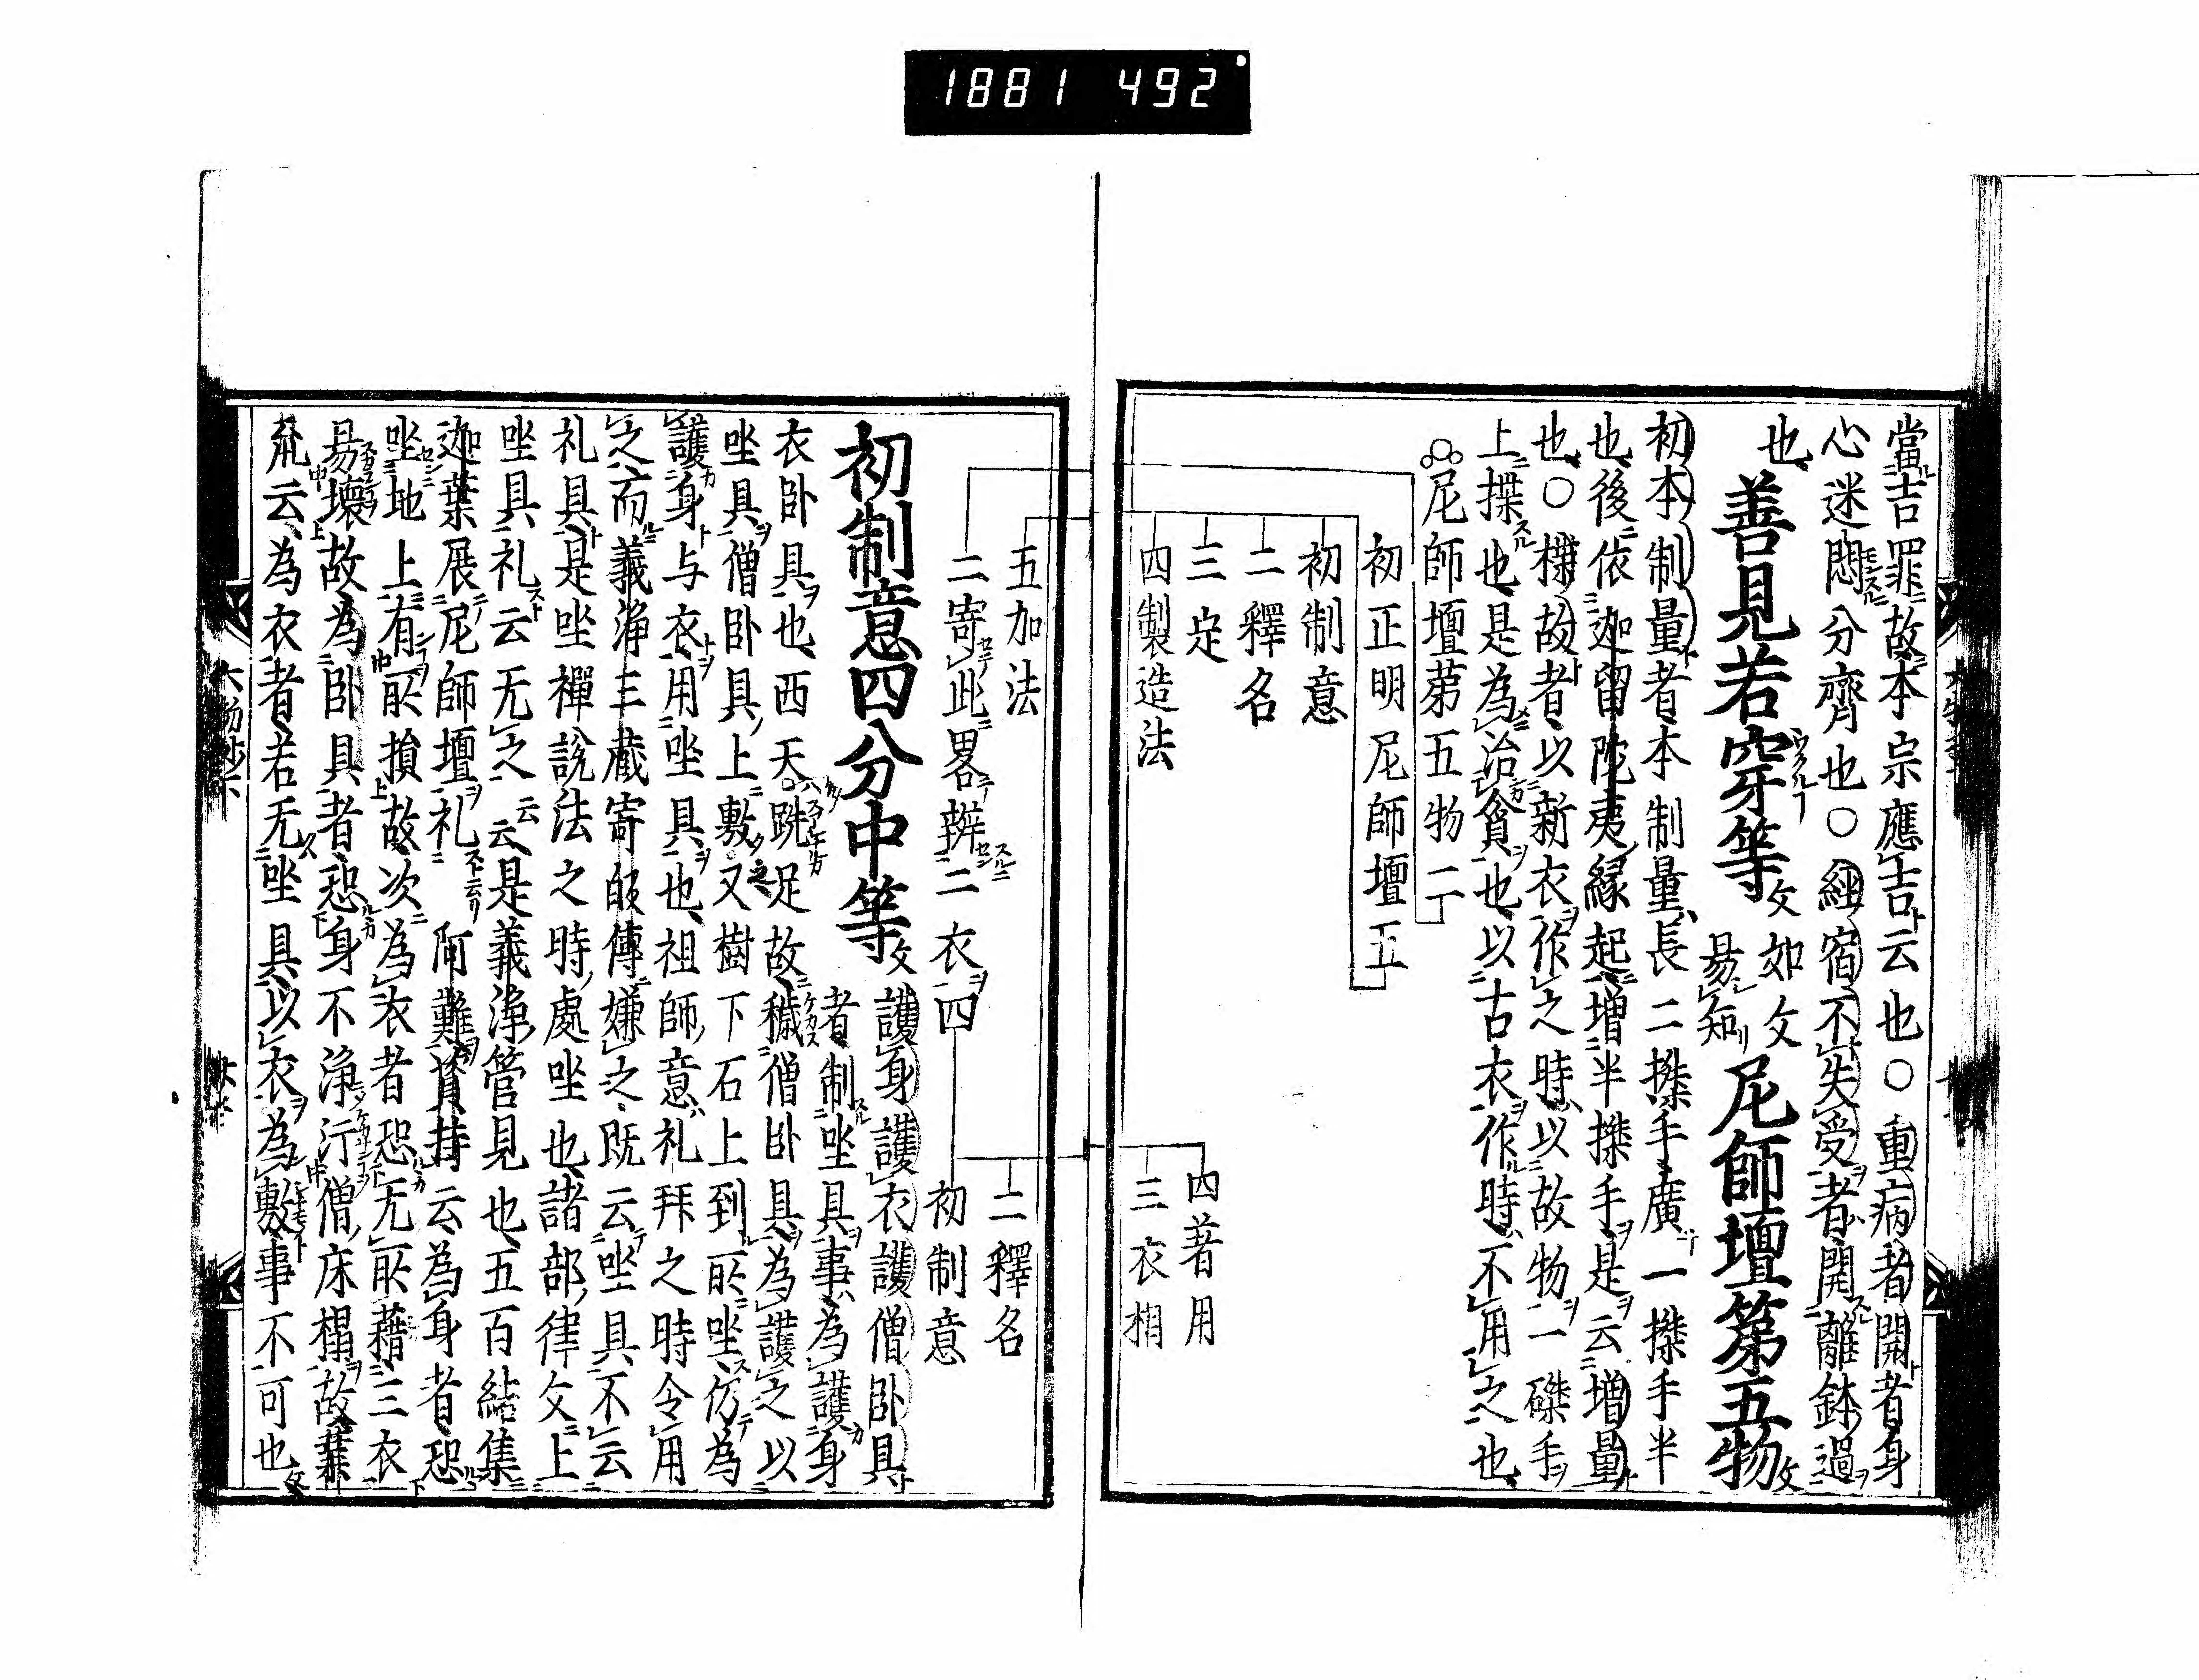 1881 492
當吉罪故本宗應吉云也○重病者開者身
心迷悶分齊也○經宿不失受者開離鉢過
也善見若穿等文如文易知尼師壇第五物文
初本制量者本制量長二搩手廣一搩手半
也後依迦留陀夷縁起増半搩手是云増量
也○揲故者以新衣作之時以故物一磔手
上揲也是為治貪也以古衣作時不用之也
尼師壇第五物二
初正明尼師壇五
初制意
二釋名
三定
四製造法
四著用
三衣相
五加法
二釋名
二寄此畧辨二衣四
初制意
初制意四分中等文護身護衣護僧卧具
者制坐具事為護身
衣卧具也西天跣足故穢僧卧具為護之以
坐具僧卧具上敷之又樹下石上到所坐仍為
護身与衣用坐具也祖師意礼拜之時令用
之而義淨三藏寄皈傳嫌之既云坐具不云
礼具是坐禪説法之時處坐也諸部律文上
坐具礼云无之云云是義淨管見也五百結集
迦葉展尼師壇礼阿難資持云為身者恐
坐地上有所損故次為衣者恐无所藉三衣
易壞故為卧具者恐身不淨汚僧床榻故業
䟽云為衣者若无坐具以衣為敷事不可也文